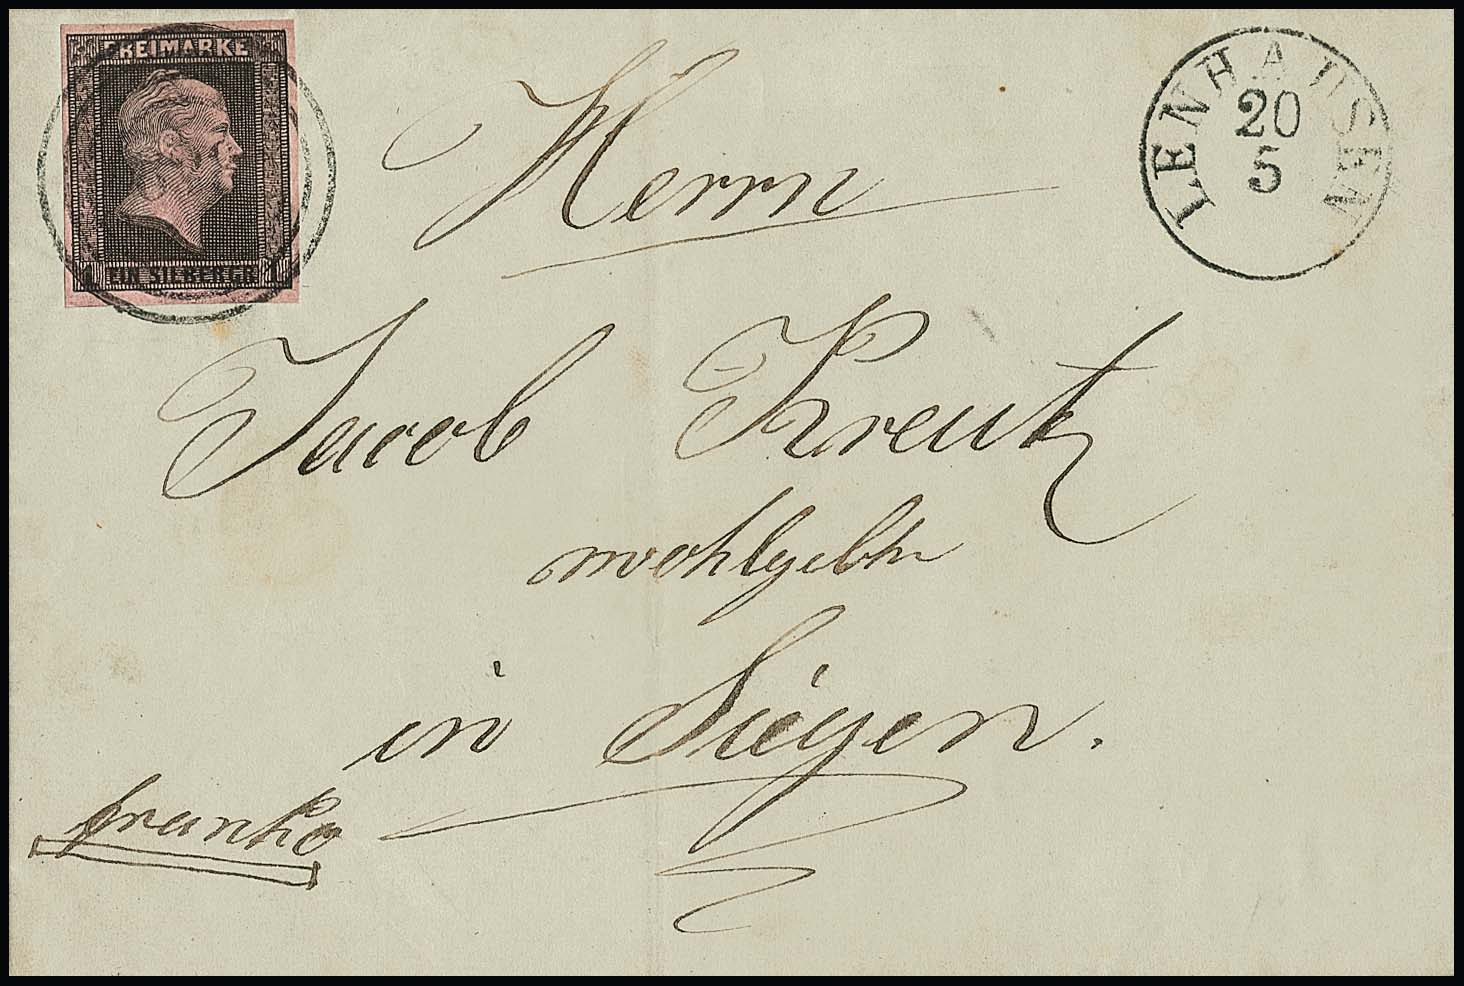 FREIMARKE
1 EIN SILBERGR. 1
LENHAUSEN
20
5
Herrn
Jacob Kreutz
wohlgebn
in Siegen.
franko